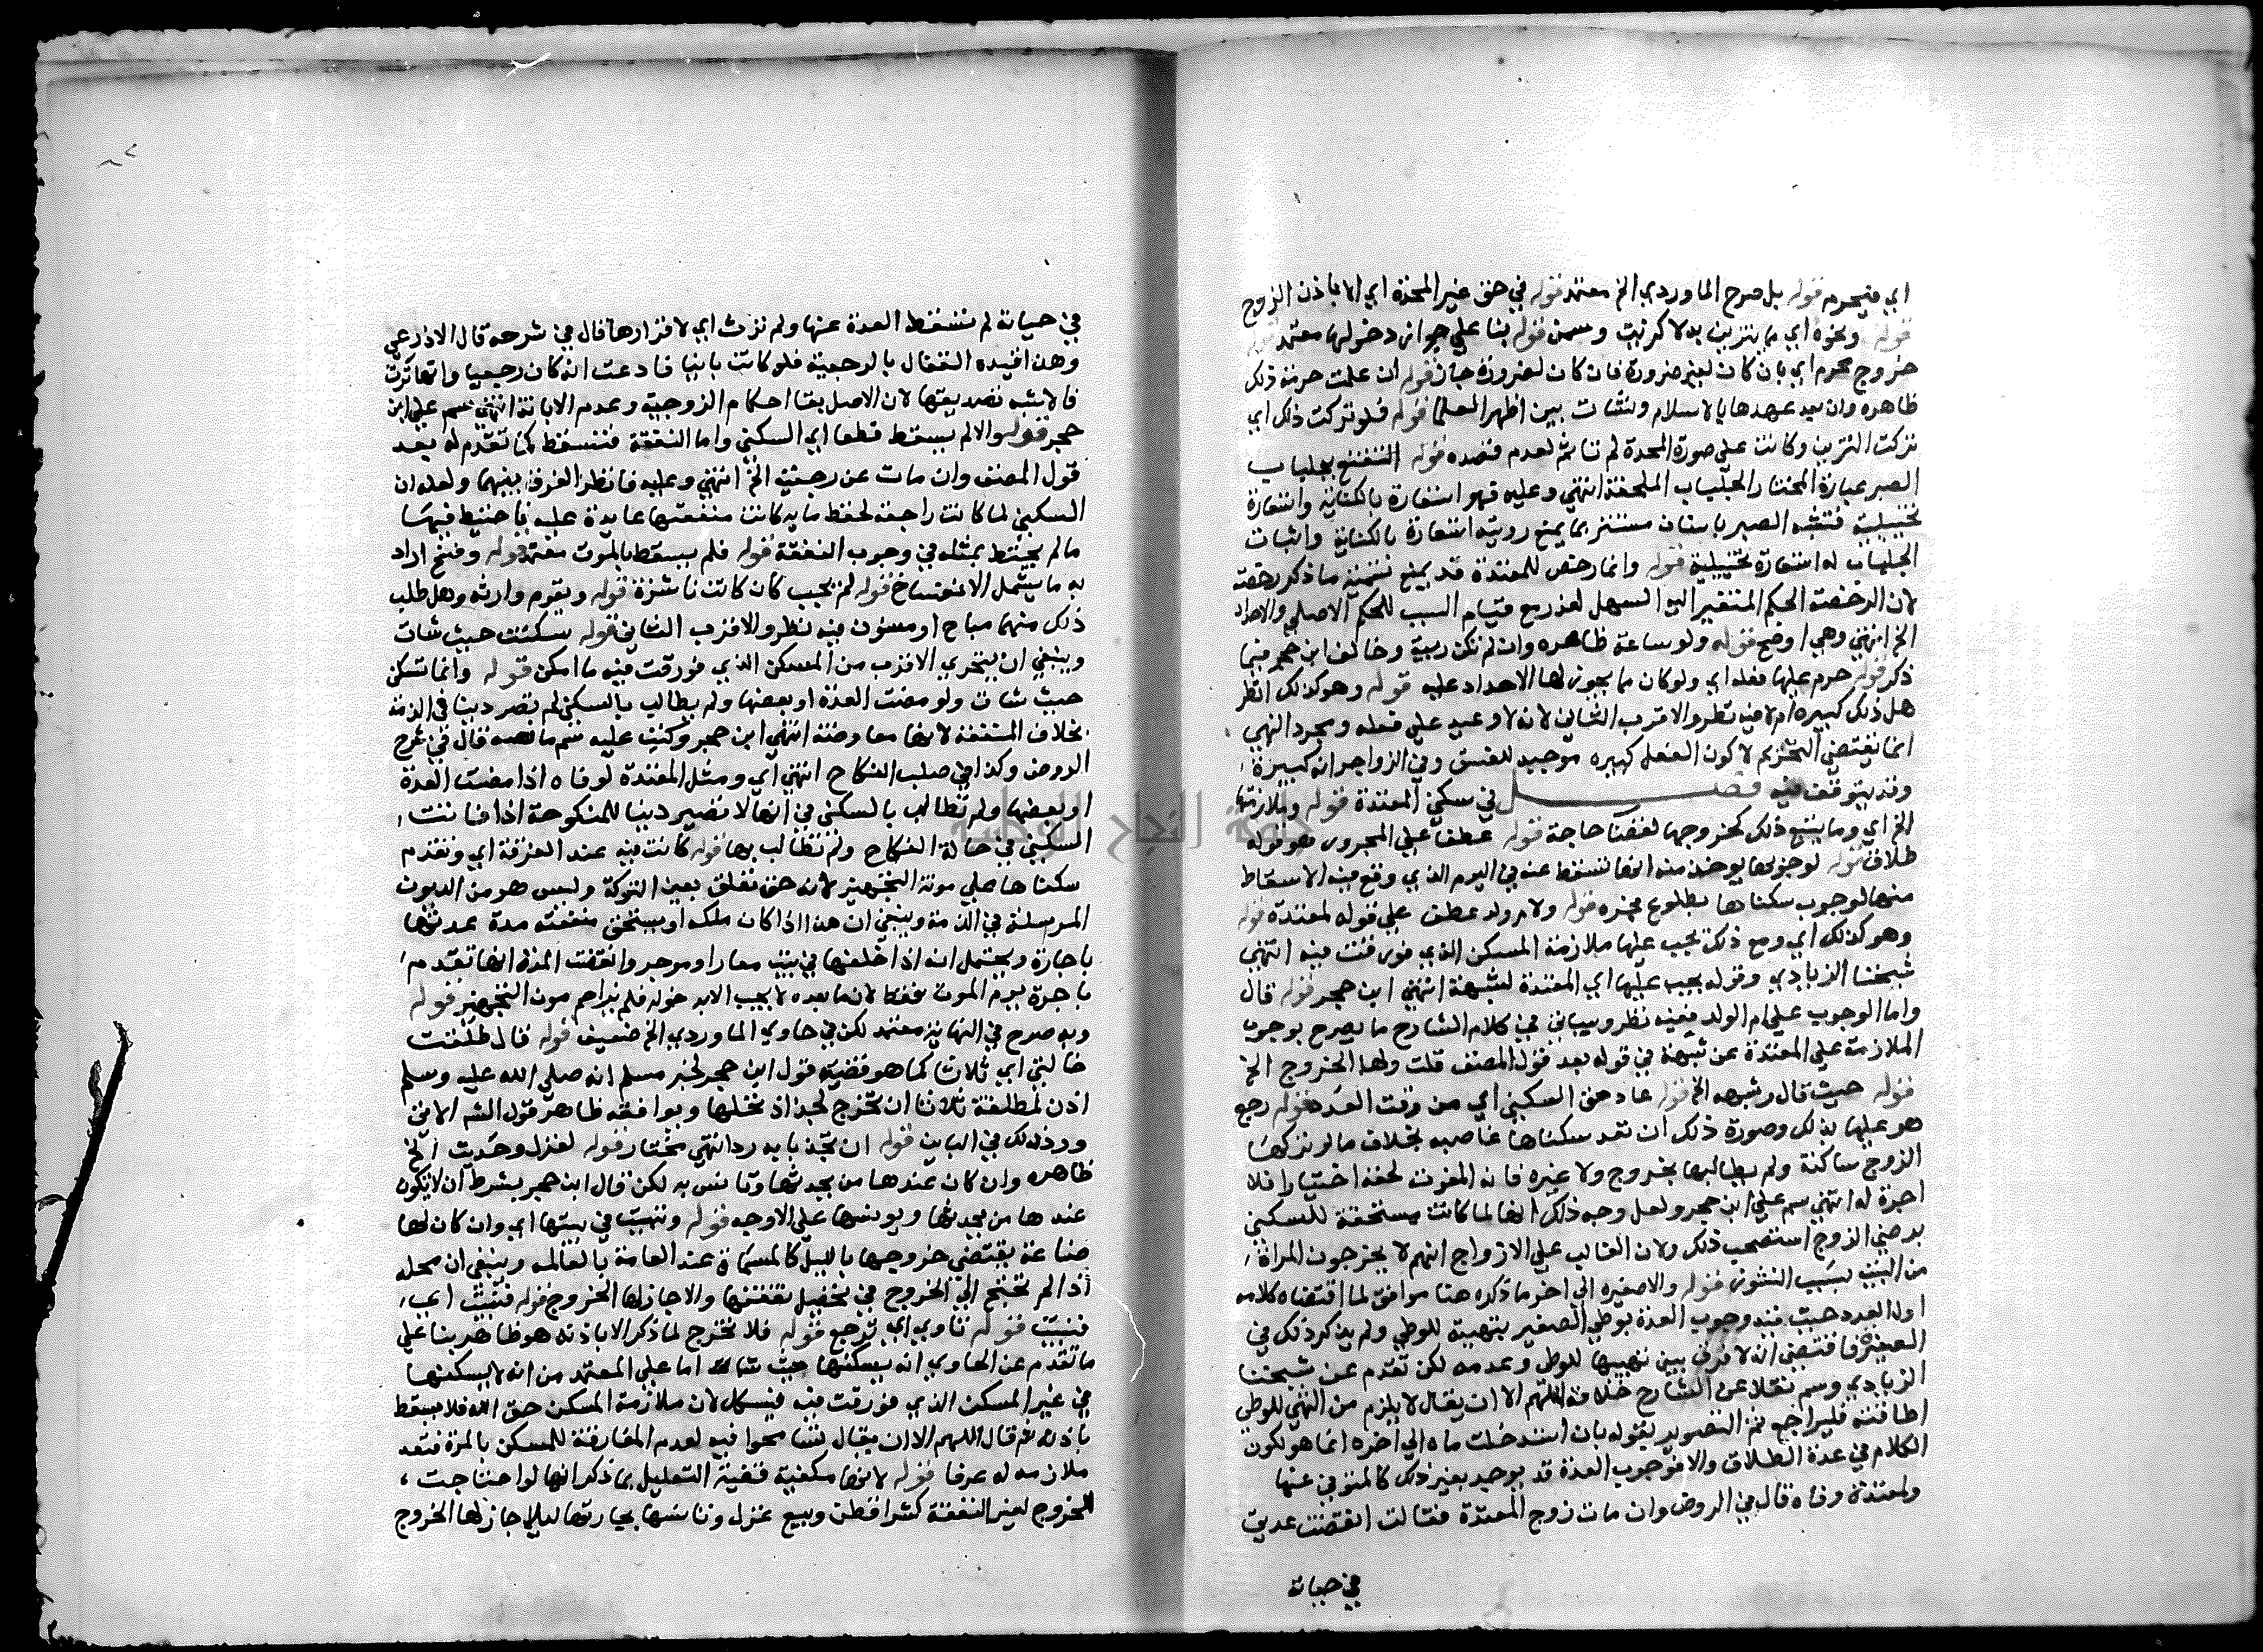 اي فيحرم قوله بل صرح الماوردي الخ معتمد قوله في حق غير المحدة اي الا باذن الزوج
قوله ونحوه اي مما يتزين به لا كزيت وسمن قوله بنا على جواز دخولها معتمد قوله
خروج محرم اي بان كان لغير ضرورة فان كان لضرورة جاز قوله ان علمت حرمة ذلك
ظاهره وان بعد عهدها بالاسلام ونشات بين اظهر العلما قوله فلو تركت ذلك اي
تركت التزين وكانت على صورة المحدة لم تاثم لعدم قصده قوله التقنع بجلباب
الصبر عبارة المختار الجلباب الملحفة انتهى وعليه فهو استعارة بالكناية واستعارة
تخييلية فتشبه الصبر بانسان مستتر بما يمنع رويته استعارة بالكناية واثبات
الجلباب له استعارة تخييلية قوله وانما رخص للمعتدة قد يمنع تسمية ما ذكر رخصة
لان الرخصة الحكم المتغير اليه السهل لعذر مع قيام السبب للحكم الاصلي والاحداد
الخ انتهى وهي اوضح قوله ولو ساعة ظاهره وان لم تكن ريبة وخالف ابن حجر فيما
ذكر قوله حرم عليها فعله اي ولو كان مما يجوز لها الاحداد عليه قوله وهو كذلك انظر
هل ذلك كبيره ام لا فيه نظر والاقرب الثاني لانه لا وعيد على فعله ومجرد النهي
انما يقتضي التحريم لا كون الفعل كبيره موجبه للفسق وفي الزواجر انه كبيرة
وقد يتوقف فيه فصل في سكنى المعتدة قوله وملازمتها
الخ اي وما يتبع ذلك كخروجها لقضا حاجة قوله عطف على المجرور هو قوله
طلاق قوله لوجوبها يوخذ منه انها تسقط عنه في اليوم الذي وقع فيه الاسقاط
منها لوجوب سكناها بطلوع فجره قوله ولام ولد عطف على قوله لمعتدة قوله
وهو كذلك اي ومع ذلك يجب عليها ملازمة المسكن الذي فورقت فيه انتهى
شيخنا الزيادي وقوله يجب عليها اي المعتدة لشبهة انتهى ابن حجر قوله قال
واما الوجوب على ام الولد ففيه نظر وسياتي في كلام الشارح ما يصرح بوجوب
الملازمة على المعتدة عن شبهة في قوله بعد قول المصنف قلت ولها الخروج الخ
قوله حيث قال وشبهه الخ قوله عاد حق السكنى اي من وقت العود قوله رجع
هو عليها بذلك وصورة ذلك ان تعد سكناها غاصبه بخلاف ما لو تركها
الزوج ساكنة ولم يطالبها بخروج ولا غيره فانه المفوت لحقه اختيارا فلا
اجرة له انتهى سم على ابن حجر ولعل وجه ذلك انها لما كانت مستحقة للسكنى
برضي الزوج استصحب ذلك ولان الغالب على الازواج انهم لا يخرجون المراة
من البيت بسبب النشوز قوله والاصغيره الى اخر ما ذكره هنا موافق لما اقتضاه كلامه
اول العدد حيث قيد وجوب العدة بوطي الصغير بتهيئة للوطي ولم يذكر ذلك في
الصغيرة فاقتضى انه لا فرق بين تهييها للوطي وعدمه لكن تقدم عن شيخنا
الزيادي وسم نقلا عن الشارح خلافه اللهم الا ان يقال لا يلزم من التهيي للوطي
اطاقته فليراجع ثم التصوير بقوله بان استدخلت ماه الى اخره انما هو لكون
الكلام في عدة الطلاق والا فوجوب العدة قد يوجد بغير ذلك كالمتوفى عنها
ولمعتدة وفاه قال في الروض وان مات زوج المعتدة فقالت انقضت عدتي
في حياته
في حياته لم تسقط العدة عنها ولم ترث اي لاقرارها قال في شرحه قال الاذرعي
وهذا قيده القفال بالرجعية فلو كانت باينا فادعت انه كان رجعيا وانها ترث
فالاشبه تصديقها لان الاصل بقا احكام الزوجية وعدم الابانة انتهى سم على ابن
حجر قوله والا لم يسقط قطعا اي السكنى واما النفقة فتسقط كما تقدم له بعد
قول المصنف وان مات عن رجعية الخ انتهى وعليه فانظر الفرق بينهما ولعله ان
السكنى لما كانت راجعة لحفظ مايه كانت منفعتها عايدة عليه فاحتيط فيها
ما لم يحتط بمثله في وجوب النفقة قوله فلم يسقط بالموت معتمد قوله وفسخ اراد
به ما يشمل الانفساخ قوله لم يجب كان كانت ناشزة قوله ويقوم وارثه وهل طلب
ذلك منهما مباح او مسنون فيه نظر والاقرب الثاني قوله سكنت حيث شات
وينبغي ان يتحري الاقرب من المسكن الذي فورقت فيه ما امكن قوله وانما تسكن
حيث شات ولو مضت العدة او بعضها ولم يطالب بالسكنى لم تصر دينا في الذمة
بخلاف النفقة لانها معاوضة انتهى ابن حجر وكتب عليه سم ما نصه قال في شرح
الروض وكذا في صلب النكاح انتهى اي ومثل المعتدة لوفاه اذا مضت العدة
او بعضها ولم تطالب بالسكنى في انها لا تصير دينا للمنكوحة اذا فاتت
السكنى في حالة النكاح ولم تطالب بها قوله كانت فيه عند الفرقة اي وتقدم
سكناها على مونة التجهيز لانه حق تعلق بعين التركة وليس هو من الديون
المرسلة في الذمة وينبغي ان هذا اذا كان ملكه او يستحق منفعته مدة عدتها
باجارة ويحتمل انه اذا خلفها في بيت معار او موجر وانقضت المدة انها تقدم
باجرة يوم الموت فقط لان ما بعده لا يجب الا بدخوله فلم يزاحم مون التجهيز قوله
وبه صرح في النهاية معتمد لكن في حاوي الماوردي الخ ضعيف قوله قال طلقت
خالتي اي ثلاثا كما هو قضية قول ابن حجر لخبر مسلم انه صلى الله عليه وسلم
اذن لمطلقة ثلاثا ان تخرج لجذاذ نخلها ويوافقه ظاهر قول الشه الاتي
وورد ذلك في الباين قوله ان تجذ بابه رد انتهى مختار قوله لغزل وحديث الخ
ظاهره وان كان عندها من يحدثها وتانس به لكن قال ابن حجر بشرط ان لا يكون
عندها من يحدثها ويونسها على الاوجه قوله وتبيت في بيتها اي وان كان لها
صناعة يقتضى خروجها بالليل كالمسماة عند العامة بالعالمه وينبغي ان محله
اذا لم تحتج الى الخروج في تحصيل نفقتها والا جاز لها الخروج قوله فتبيت اي
فتبيت قوله تناوي اي ترجع قوله فلا تخرج لما ذكر الا باذنه هو ظاهر بنا على
ما تقدم عن الحاوي انه يسكنها حيث شا اما على المعتمد من انه لا يسكنها
في غير المسكن الذي فورقت فيه فيشكل لان ملازمة المسكن حق الله فلا يسقط
باذنه ثم قال اللهم الا ان يقال تسامحوا فيه لعدم المفارقة للمسكن بالمرة فتعد
ملازمه له عرفا قوله لانها مكفية قضية التعليل بما ذكر انها لو احتاجت
للخروج لغير النفقة كشرا قطن وبيع غزل وتانسها بجارتها ليلا جاز لها الخروج